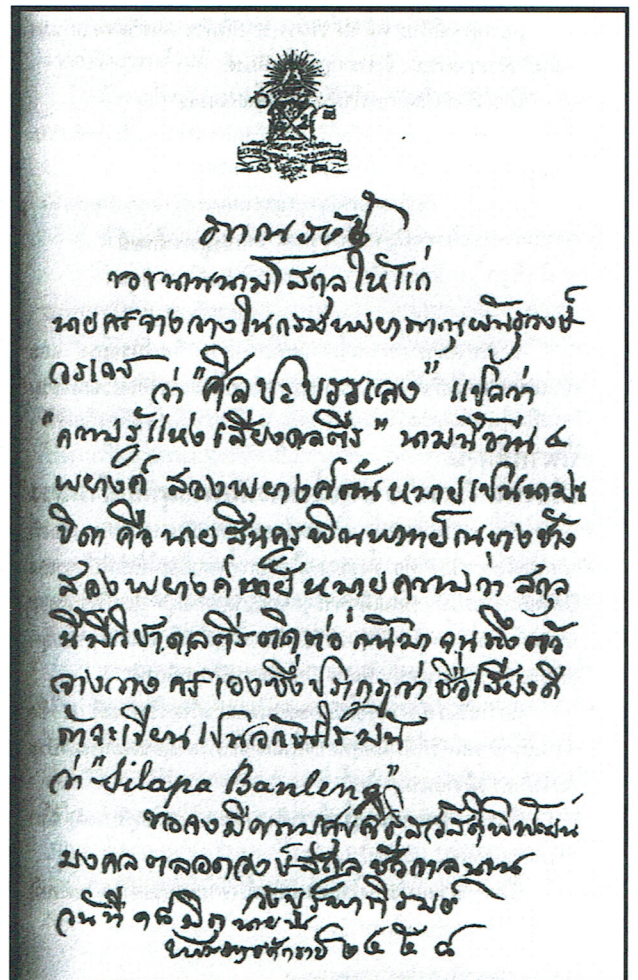 ขอขนานนามโสกุลให้แก่
นายศร จางวางในกรมพระยาภาณุพันธุวงษ์
วรเดช ว่า "ศิลปะบรรเลง" แปลว่า
"ความรู้แห่งเสียงดุลตีร" นามนี้มี ๔
พยางค์ สองพยางค์ต้นหมายเปนนาม
บิดา คือ นายสิน ครูพิณพาทย์
สองพยางค์ท้ายหมายความว่า สกุล
นี้มีวิชาดุลตีรติดต่อกันมา จนถึงตัว
จางวางศรเองซึ่งปรากฏว่าชื่อเสียงดี
ถ้าจะเขียนเปนอักษรโรมัน
ว่า "Silapa Banleng"
ขอจงมีความศุขสวัสดิ์พิพัฒน์
มงคล ตลอดวงษ์สกุล ชั่วกาลนาน
วันที่ มิถุนายน
พระพุทธศักราช ๒๔๕๘